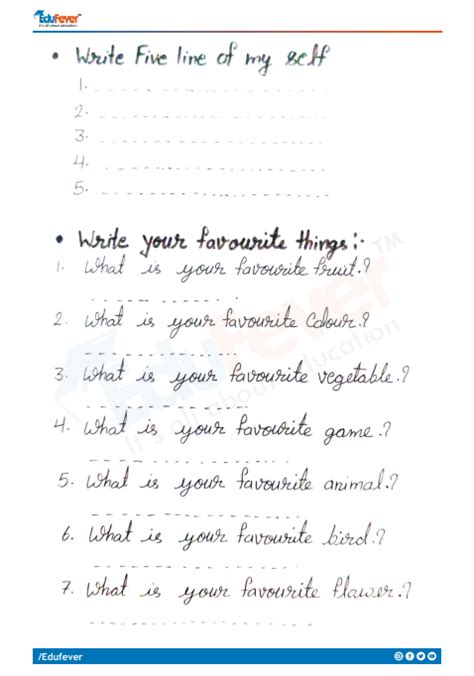 EduFever™
It's all about education
• Write Five line of my self
1.
2.
3.
4.
5.
• Write your favourite things:-
1. What is your favourite fruit.?
2. What is your favourite Colour.?
3. What is your favourite vegetable.?
4. What is your favourite game.?
5. What is your favourite animal.?
6. What is your favourite bird.?
7. What is your favourite flawer.?
EduFever™
It's all about education
/Edufever